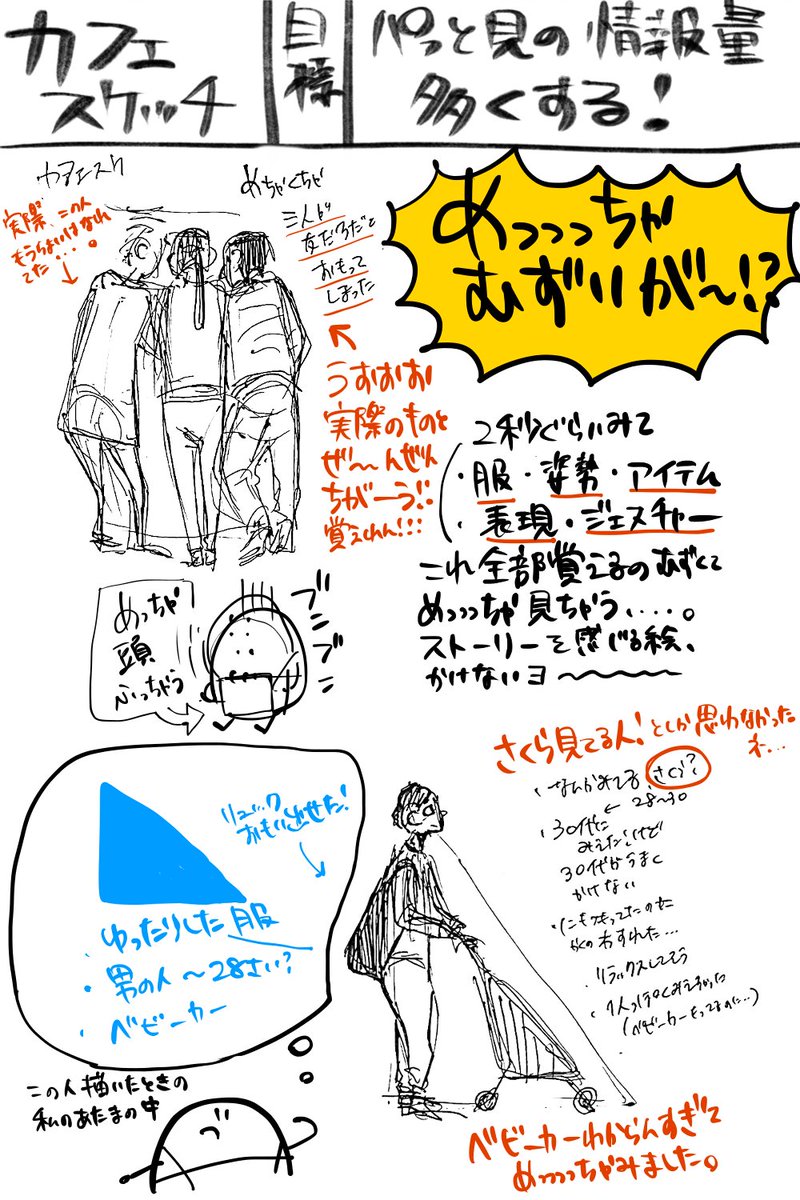 カフェ
スケッチ
目標
パっと見の情報量
多くする!
カフェスケ
めちゃくちゃ
実際、この人
もうちょいはなれ
てた・・・。
三人が
友だちだと
おもって
しまった
めっっっちゃ
むずいが〜!?
実際のものと
ぜ〜んぜん
ちがーう!!
覚えれん!!!
2秒ぐらいみて
・服・姿勢・アイテム
・表現・ジェスチャー
これ全部覚えるのむずくて
めっっっちゃ見ちゃう....。
ストーリーを感じる絵、
かけないヨ〜
めっちゃ
頭
ふっちゃう
ブンブン
さくら見てる人!としか思わなかった
ネ...
・なんかみてる、さくら?
← 28〜30
・30代に
みえたいけど
30代がうまく
かけない
リュック
おもい出せた!
・ゆったりした服
・男の人〜28さい?
・ベビーカー
・リラックスしてそう
(ベビーカーもってるのに...)
この人描いたときの
私のあたまの中
ベビーカーわからんすぎて
めっっっちゃみました。